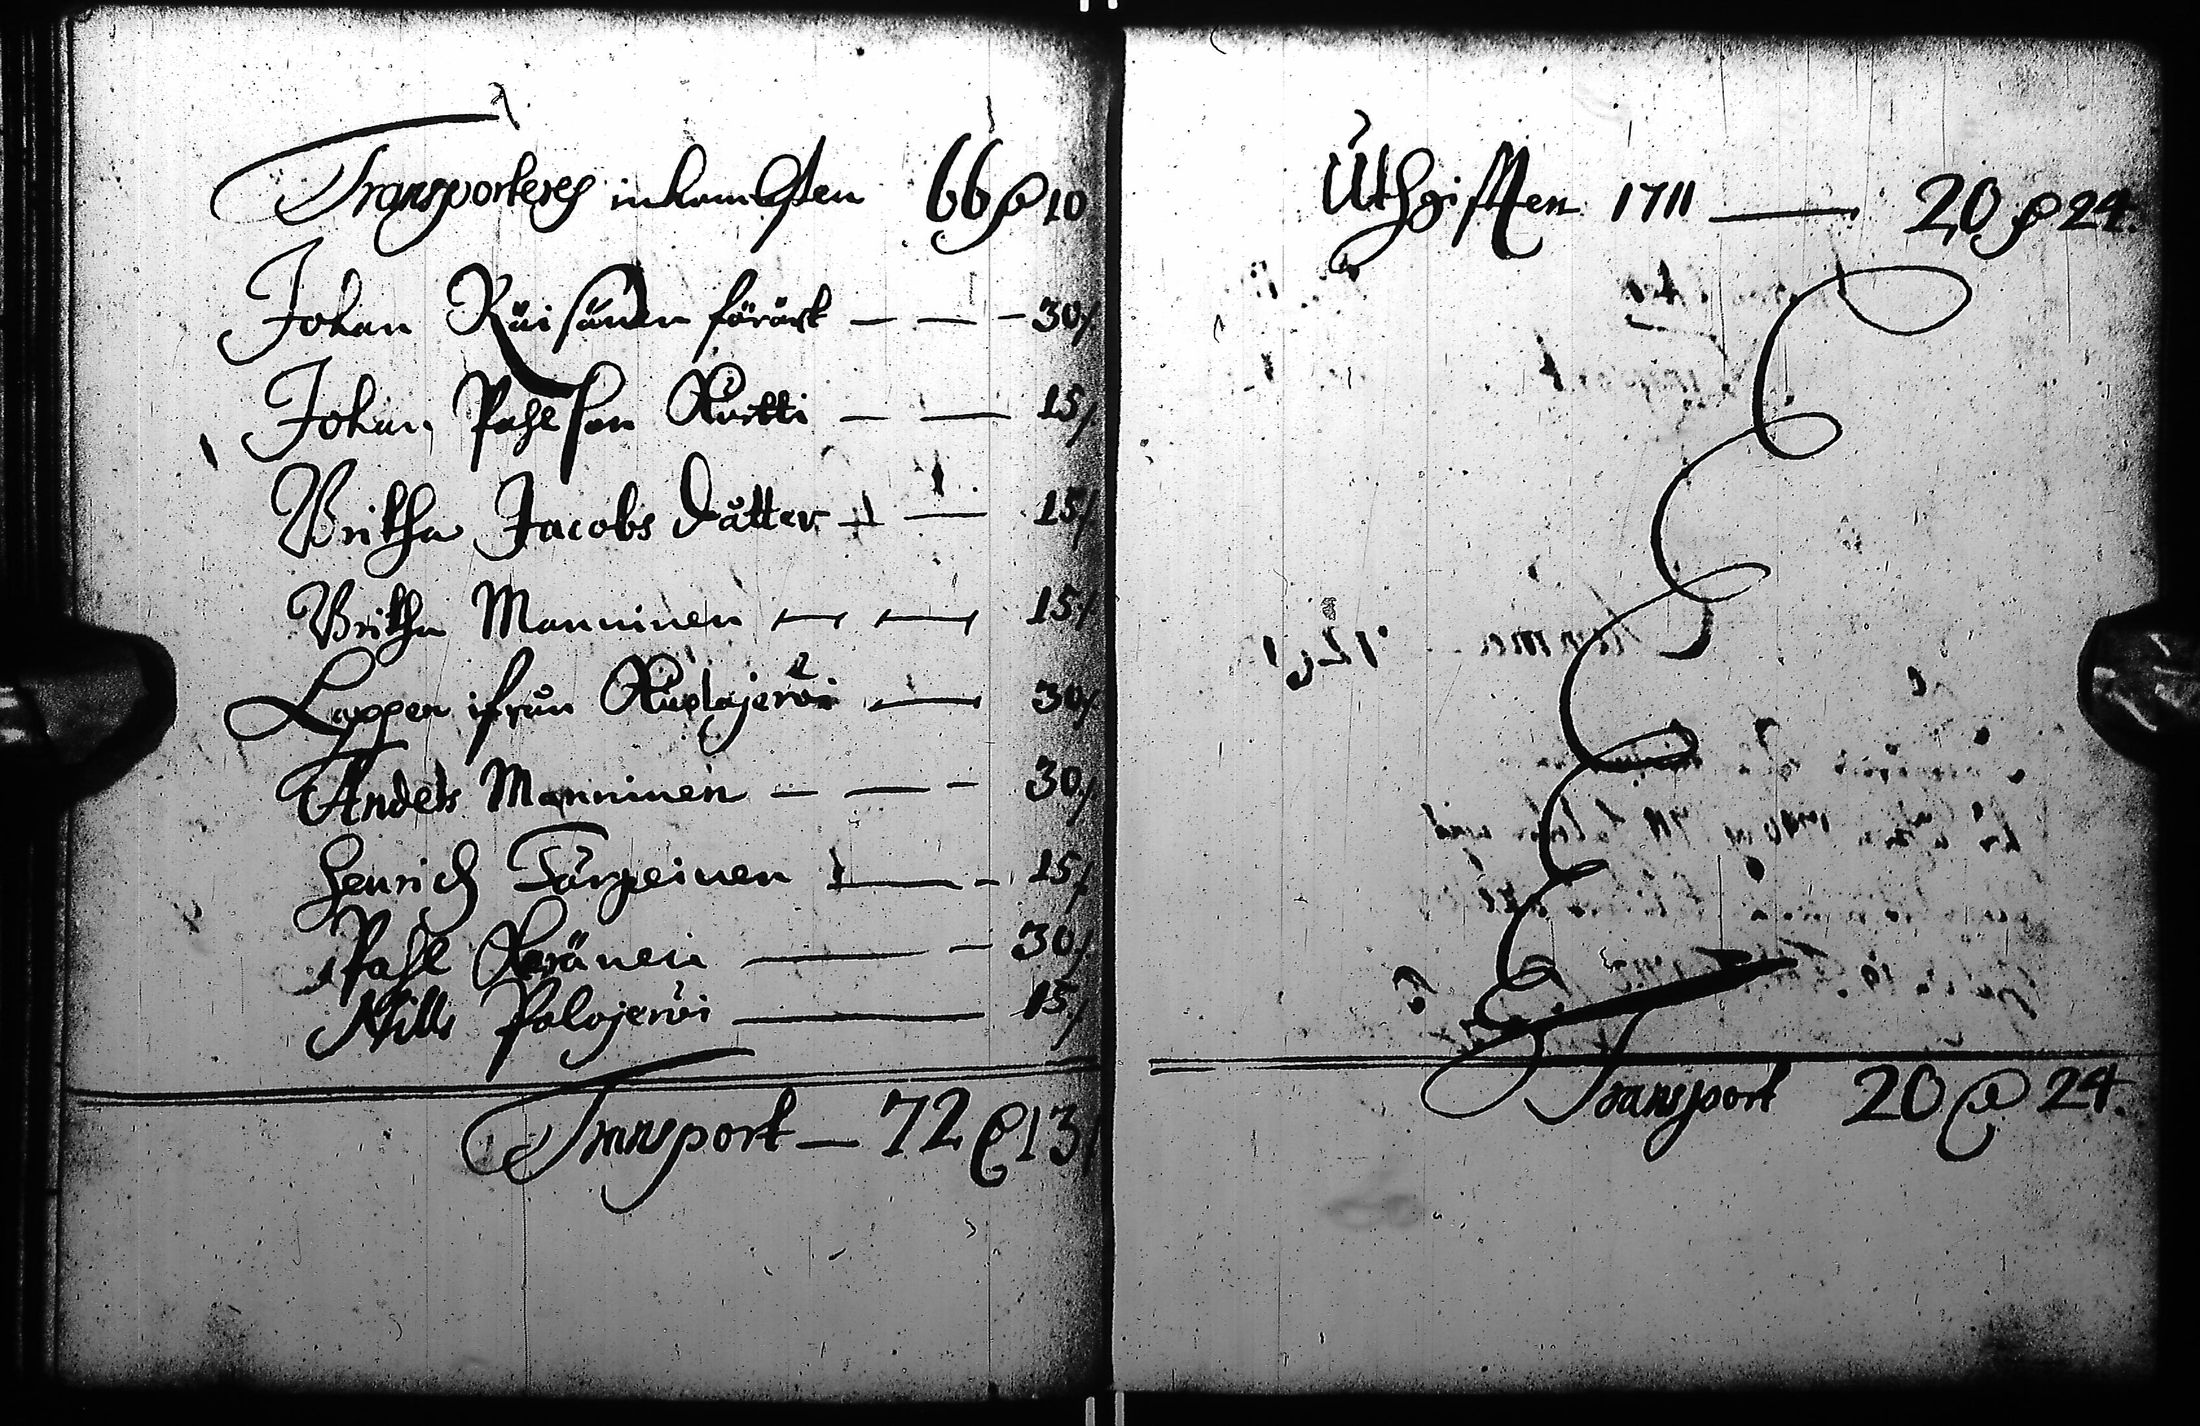 Transporteres inkombsten 66 ₰ 10
Johan Räisänen förärt — — – 30/
Johan Pahlson Kurtti — — 15/
Britha Jacobs dåtter — — 15/
Britha Manninen — — 15/
Lappen ifrån Kuolajerwi — 30/
Anders Manninen — — – 30/
Henrich Törgeinen — – 15/
Pahl Keränen — – 30/
Nills Palojerwi — 15/
Transport — 72 ₰ 13/
Uthgifften 1711 — 20 ₰ 24.
Transport 20 ₰ 24.